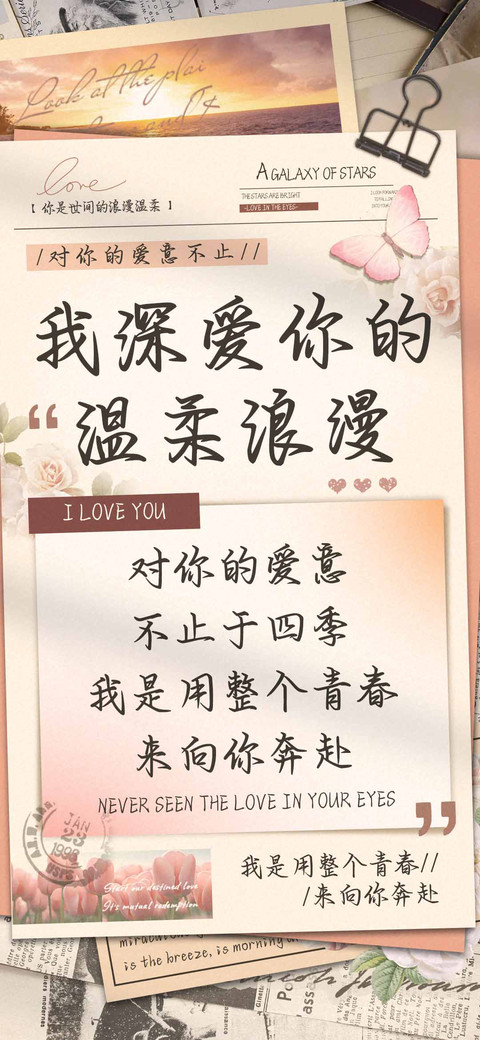 Look at the plai
love
【 你是世间的浪漫温柔 】
A GALAXY OF STARS
THE STARS ARE BRIGHT
-LOVE IN THE EYES-
/对你的爱意不止//
我深爱你的
“温柔浪漫
I LOVE YOU
对你的爱意
不止于四季
我是用整个青春
来向你奔赴
NEVER SEEN THE LOVE IN YOUR EYES
”
JAN
23
Start our destined love
It's mutual redemption
我是用整个青春//
/来向你奔赴
is the breeze, is morning